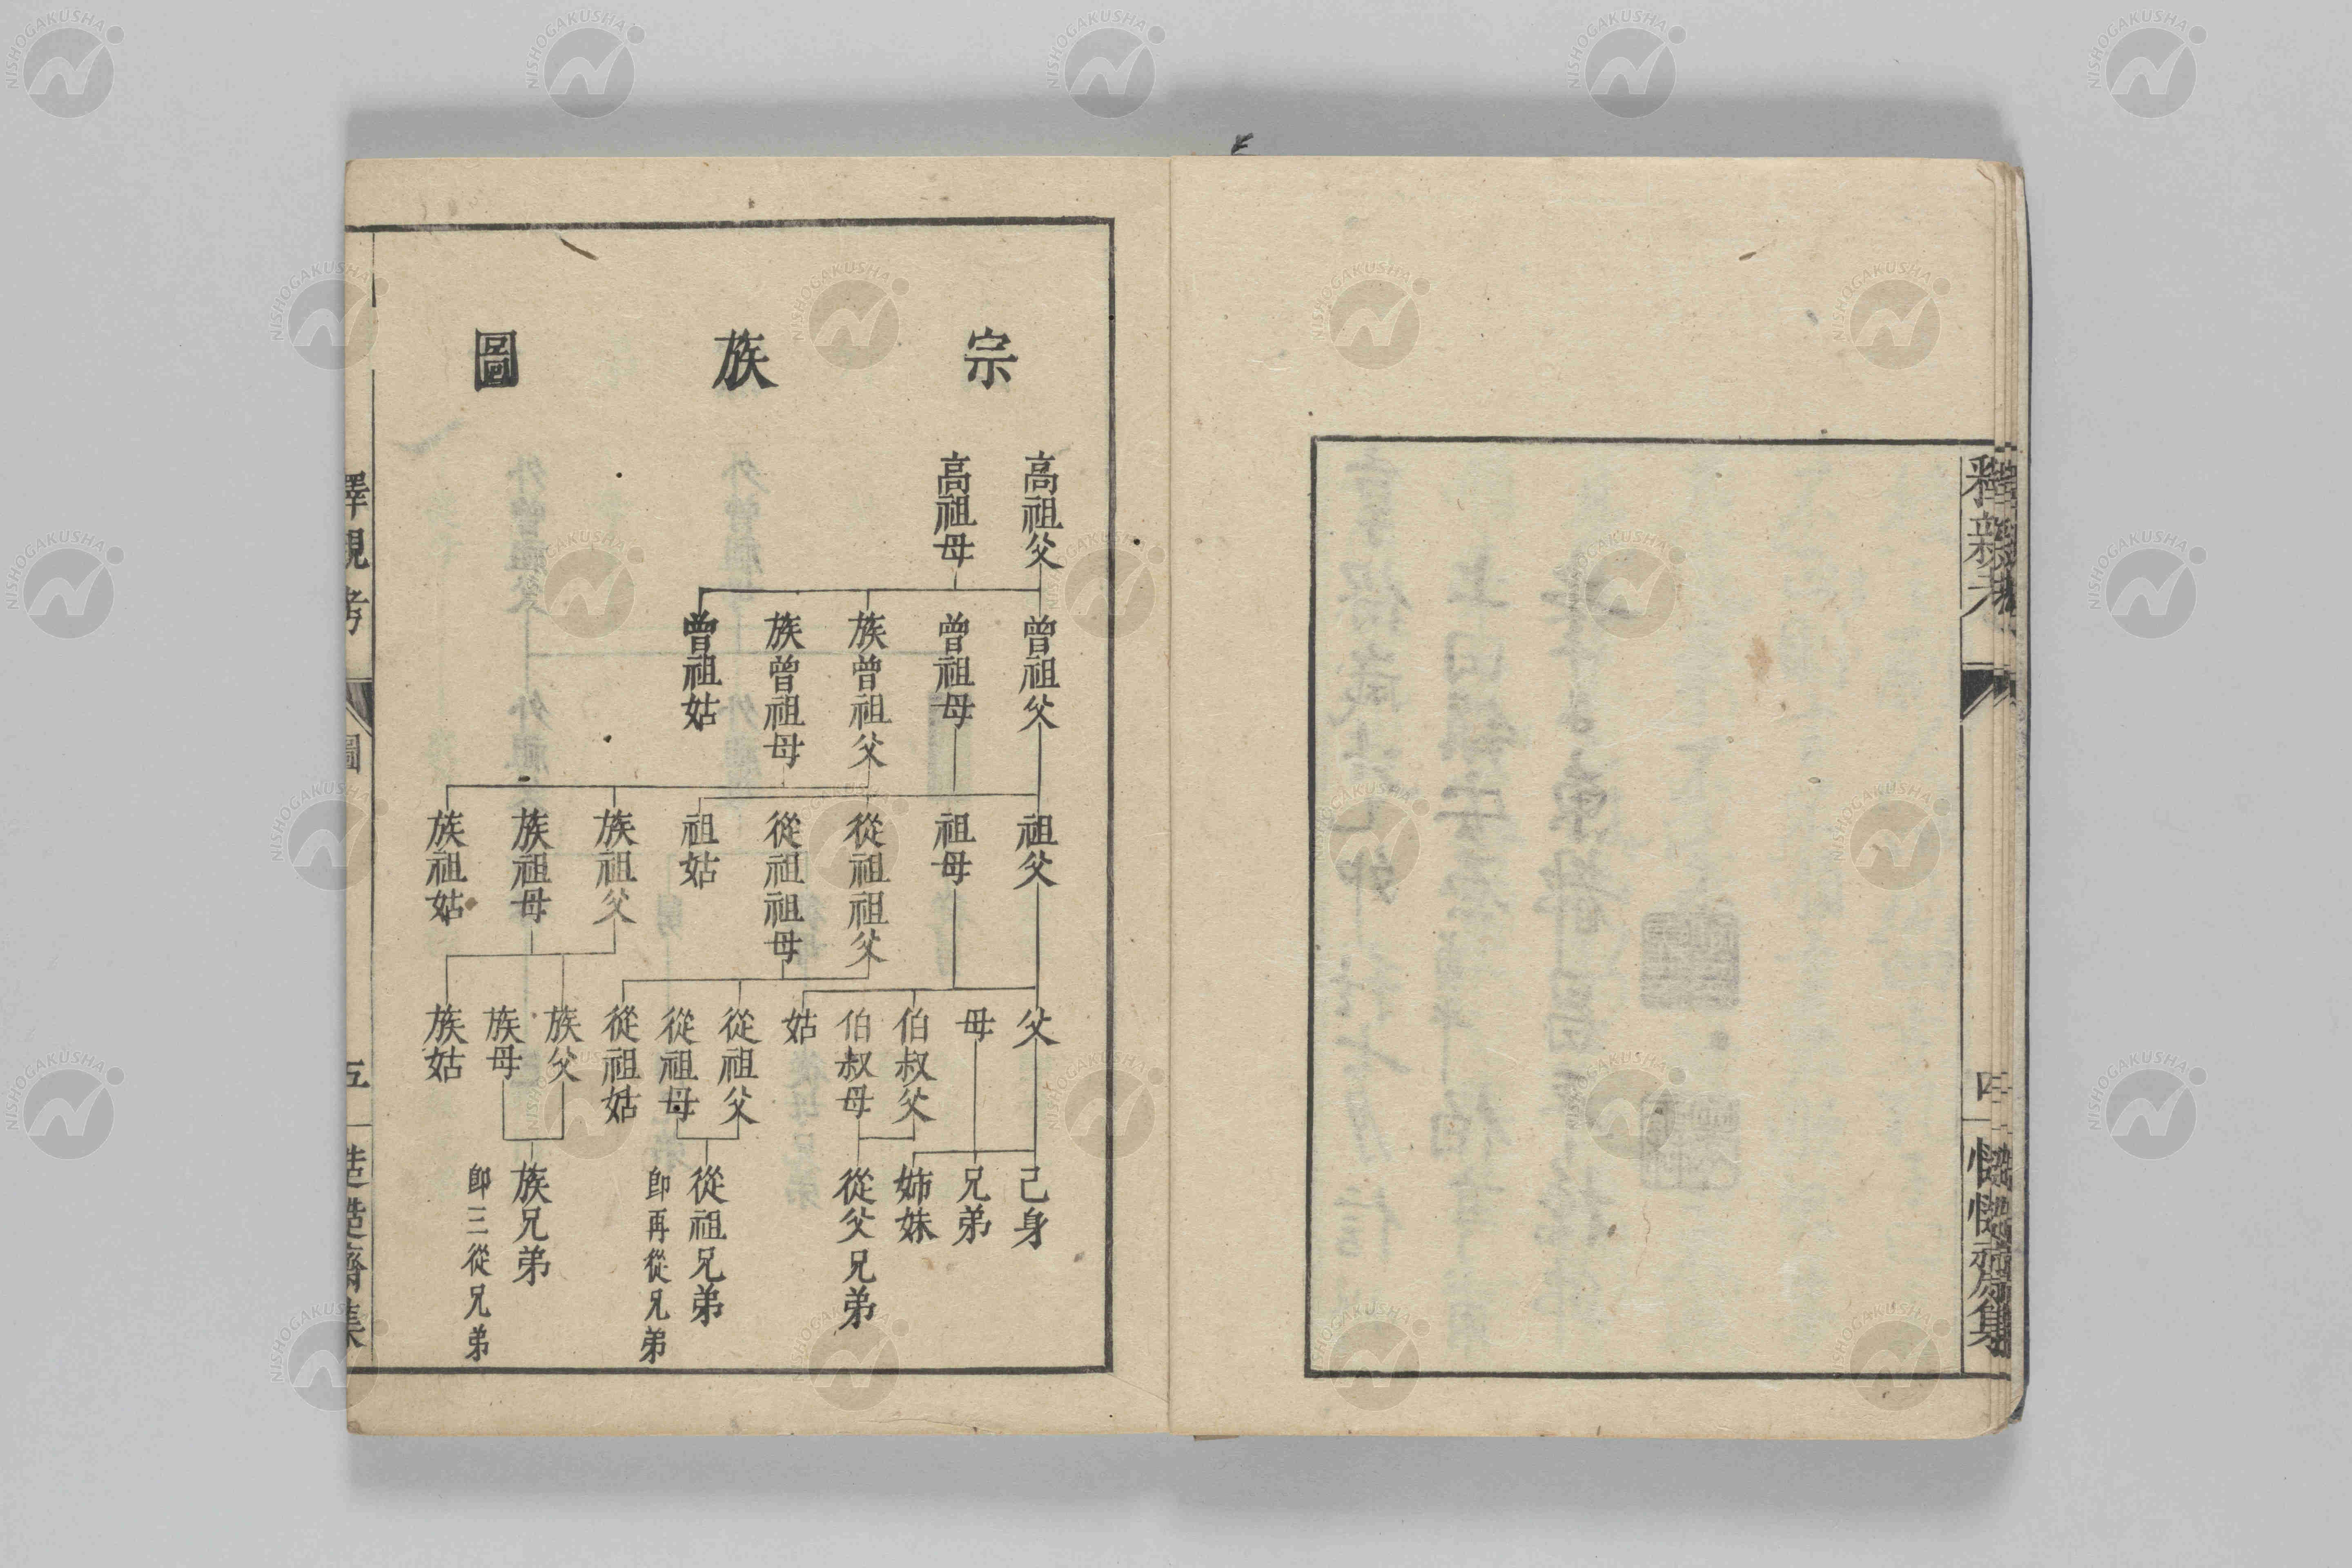 釋親考
四
慥慥齋集
宗族圖
高祖父
高祖母
曾祖父
曾祖母
族曾祖父
族曾祖母
曾祖姑
祖父
祖母
從祖祖父
從祖祖母
祖姑
族祖父
族祖母
族祖姑
父
母
伯叔父
伯叔母
姑
從祖父
從祖母
從祖姑
族父
族母
族姑
己身
兄弟
姉妹
從父兄弟
從祖兄弟
卽再從兄弟
族兄弟
卽三從兄弟
釋親考
圖
五
慥慥齋集
NISHOGAKUSHA